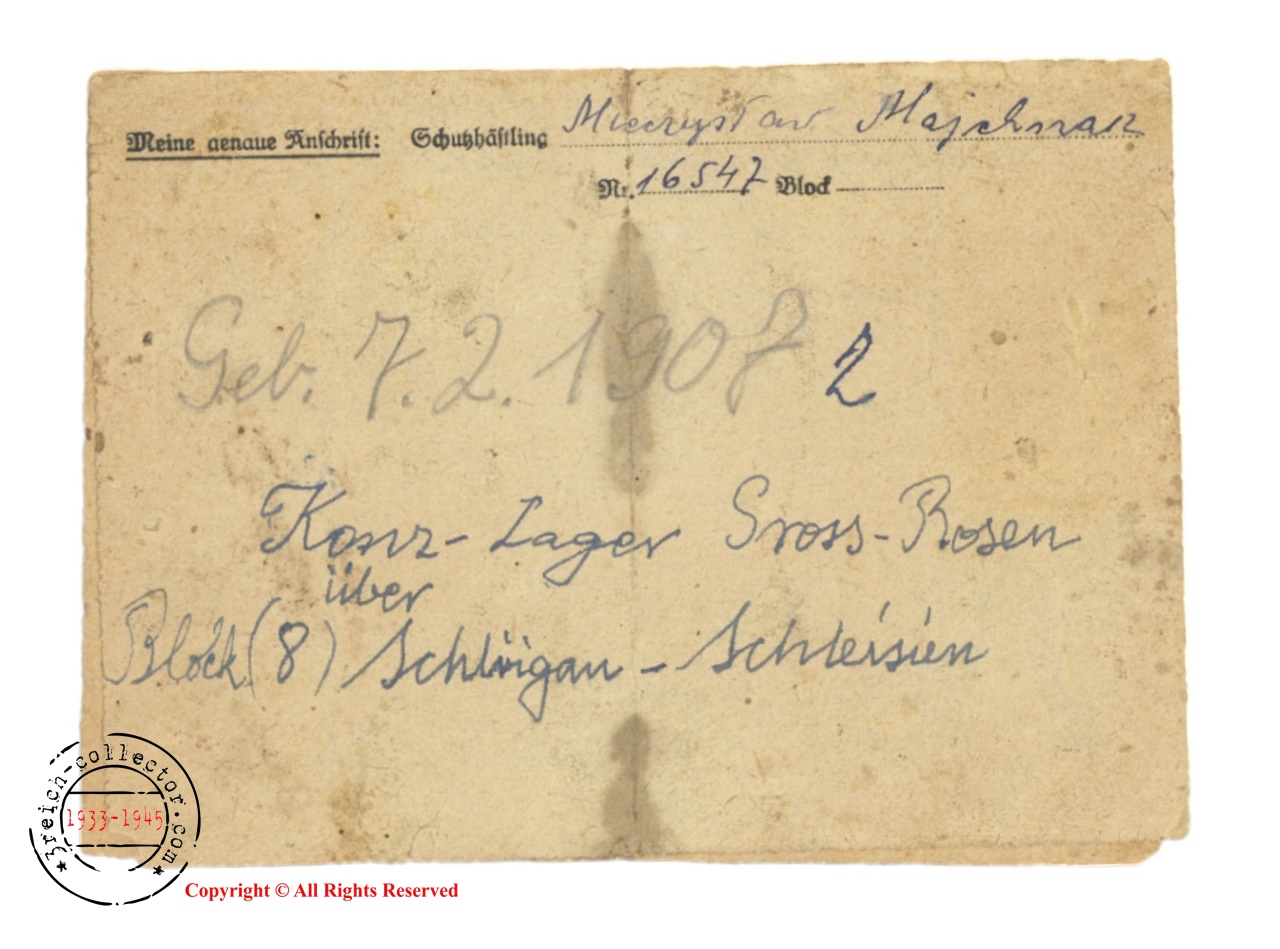 Meine genaue Anschrift: Schutzhäftling Mieczysław Majchrzak
Nr. 16547 Block
Geb. 7.2.1907 2
Konz-Lager Gross-Rosen
über
Block (8) Schtrigau - Schleisien
3reich-collector.com
1933-1945
Copyright © All Rights Reserved